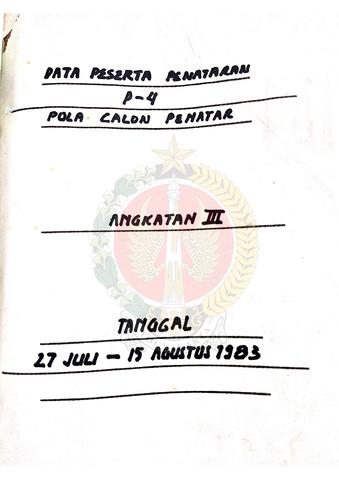 DATA PESERTA PENATARAN
P-4
POLA CALON PENATAR
ANGKATAN III
TANGGAL
27 JULI - 15 AGUSTUS 1983